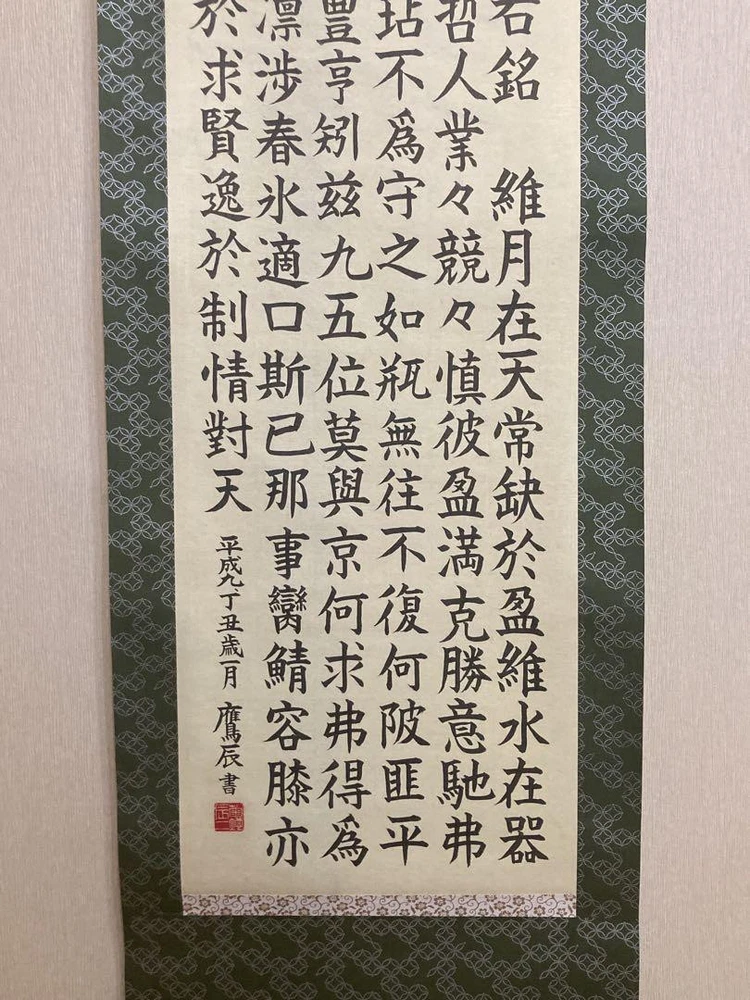 右銘 維月在天常缺於盈維水在器
哲人業々競々慎彼盈満克勝意馳弗
玷不爲守之如瓶無往不復何陂匪平
豊亨矧茲九五位莫與京何求弗得爲
凛渉春氷適口斯已那事臠鯖容膝亦
於求賢逸於制情對天
平成九丁丑歳一月 鷹辰書